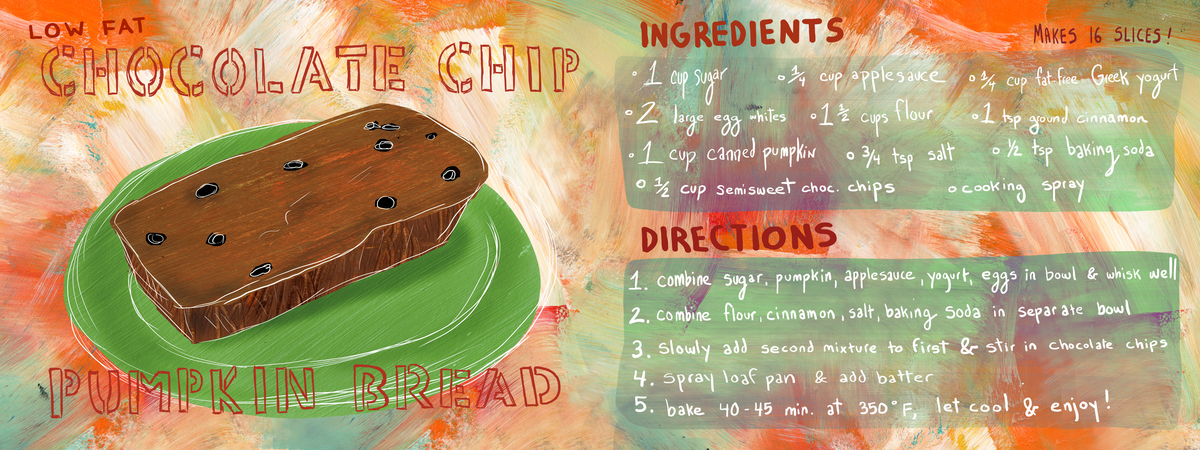 LOW FAT
CHOCOLATE CHIP
PUMPKIN BREAD
INGREDIENTS
MAKES 16 SLICES!
◦ 1 cup sugar ◦ 1/4 cup applesauce ◦ 1/4 cup fat-free Greek yogurt
◦ 2 large egg whites ◦ 1 1/2 cups flour ◦ 1 tsp ground cinnamon
◦ 1 cup canned pumpkin ◦ 3/4 tsp salt ◦ 1/2 tsp baking soda
◦ 1/2 cup semisweet choc. chips ◦ cooking spray
DIRECTIONS
1. combine sugar, pumpkin, applesauce, yogurt, eggs in bowl & whisk well
2. combine flour, cinnamon, salt, baking soda in separate bowl
3. slowly add second mixture to first & stir in chocolate chips
4. spray loaf pan & add batter
5. bake 40-45 min. at 350°F, let cool & enjoy!